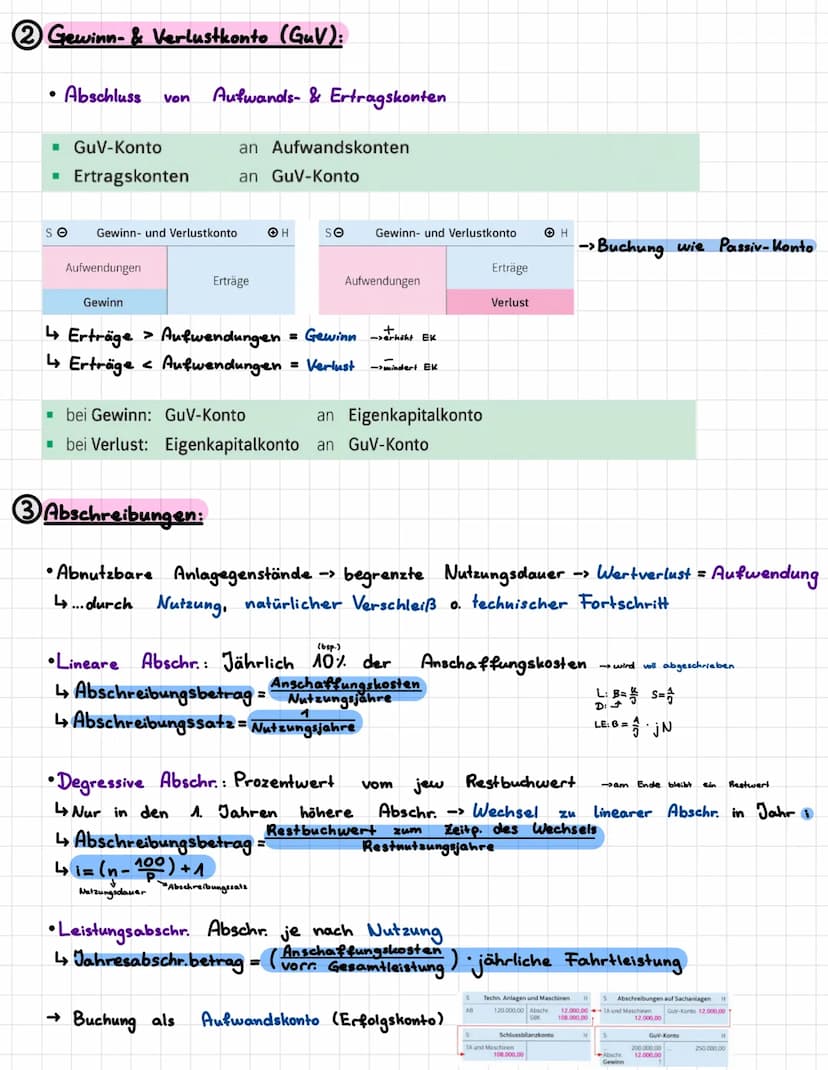 ② Gewinn- & Verlustkonto (GuV):
• Abschluss von Aufwands- & Ertragskonten
▪ GuV-Konto an Aufwandskonten
▪ Ertragskonten an GuV-Konto
S ⊖ Gewinn- und Verlustkonto ⊕ H
Aufwendungen
Erträge
Gewinn
S ⊖ Gewinn- und Verlustkonto ⊕ H
Aufwendungen
Erträge
Verlust
→ Buchung wie Passiv-Konto
↳ Erträge > Aufwendungen = Gewinn + → erhöht EK
↳ Erträge < Aufwendungen = Verlust - → mindert EK
▪ bei Gewinn: GuV-Konto an Eigenkapitalkonto
▪ bei Verlust: Eigenkapitalkonto an GuV-Konto
③ Abschreibungen:
• Abnutzbare Anlagegenstände -> begrenzte Nutzungsdauer -> Wertverlust = Aufwendung
↳ ...durch Nutzung, natürlicher Verschleiß o. technischer Fortschritt
• Lineare Abschr.: Jährlich (bsp.) 10% der Anschaffungskosten → wird voll abgeschrieben
↳ Abschreibungsbetrag = Anschaffungskosten / Nutzungsjahre
↳ Abschreibungssatz = 1 / Nutzungsjahre
• Degressive Abschr.: Prozentwert vom jew Restbuchwert → am Ende bleibt ein Restwert
↳ Nur in den 1. Jahren höhere Abschr. -> Wechsel zu linearer Abschr. in Jahr i
↳ Abschreibungsbetrag = Restbuchwert zum Zeitp. des Wechsels / Restnutzungsjahre
↳ i = (n - 100/P) + 1
Nutzungsdauer
Abschreibungssatz
• Leistungsabschr. Abschr. je nach Nutzung
↳ Jahresabschr.betrag = (Anschaffungskosten / vorr. Gesamtleistung) · jährliche Fahrtleistung
→ Buchung als Aufwandskonto (Erfolgskonto)
S Techn. Anlagen und Maschinen H
AB 120.000,00 Abschr. 12.000,00
SBK 108.000,00
S Abschreibungen auf Sachanlagen H
TA und Maschinen 12.000,00 GuV-Konto 12.000,00
S Schlussbilanzkonto H
TA und Maschinen
108.000,00
S GuV-Konto H
... 200.000,00 ... 250.000,00
Abschr. 12.000,00
Gewinn ?